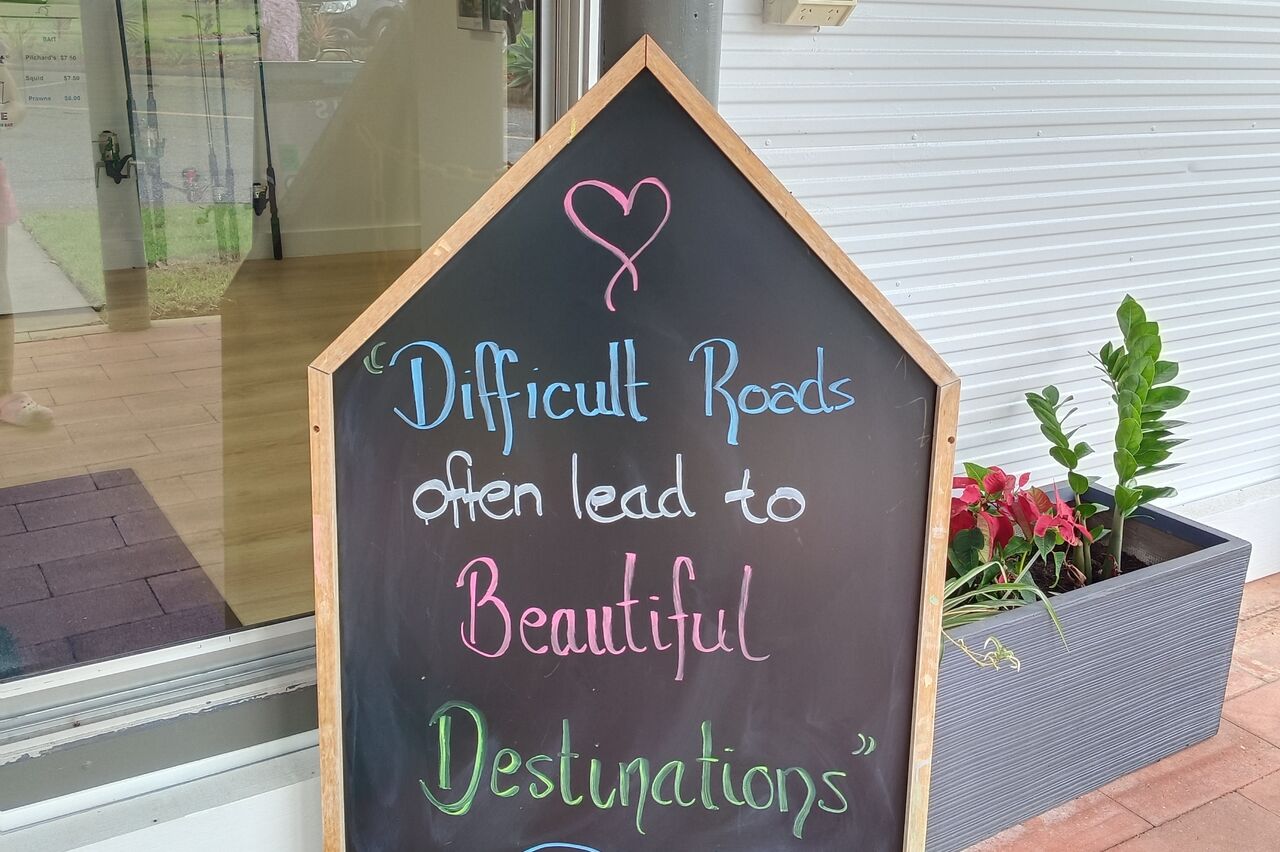 BAIT
Pilchard's $7.50
Squid $7.50
Prawns $8.00
"Difficult Roads
often lead to
Beautiful
Destinations"